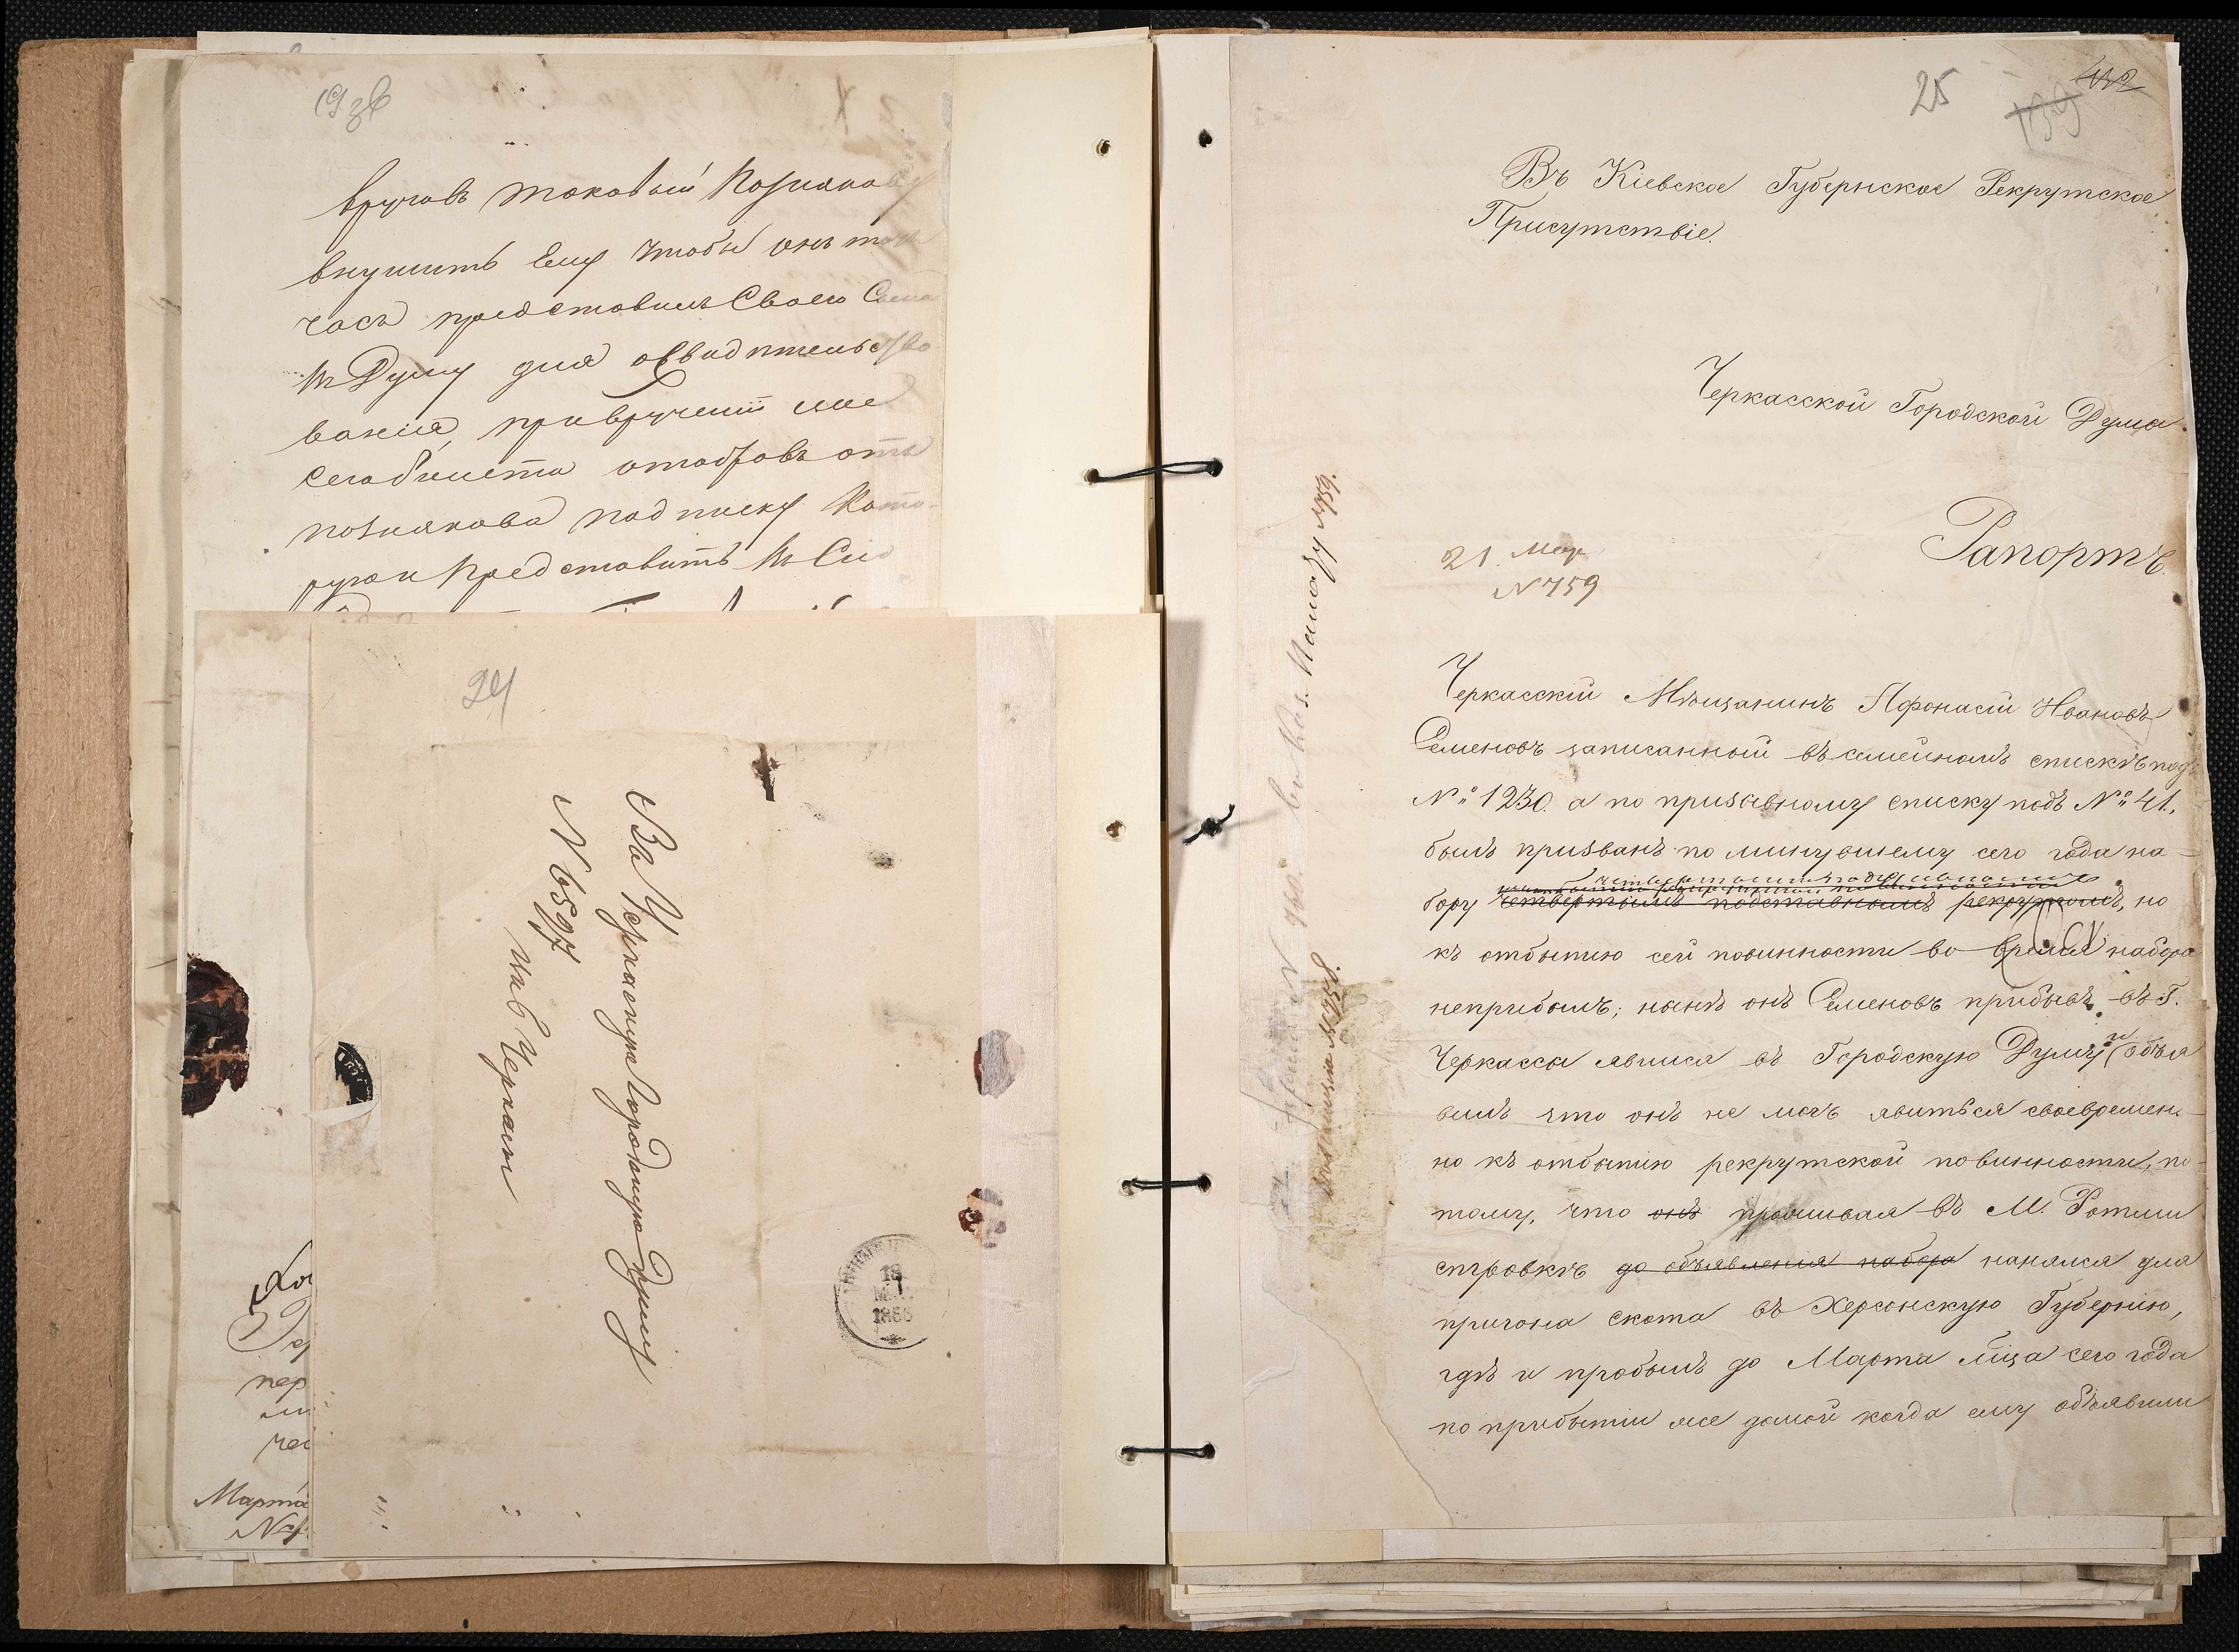 19 зв
вручивъ таковый Познякову
внушить Ему чтобы онъ тот
часъ представилъ Своего Сына
въ Думу для освидѣтельство
ванія, при врученіи же
сего билета отобравъ отъ
познякова подписку кото-
рую и представить въ Сию
24
Въ Черкаскую Городскую Думу
N 6597
въ Черкасы
18
1866
Марта
25
139
432
Въ Кіевское Губернское Рекрутское
Присутствіе.
Черкасской Городской Думы
Рапортъ.
21 Мар
N 759
N 759.
N 758
Черкасскій Мѣщанинъ Афонасій Ивановъ
Семеновъ записанный въ семейномъ спискѣ подъ
№ 1230. а по призывному списку подъ № 41.
былъ призванъ по минувшему сего года на-
бору четвертымъ подставнымъ рекрутомъ, но
къ отбытію сей повинности во время набора
неприбылъ; нынѣ онъ Семеновъ прибывъ въ Г.
Черкассы явился въ Городскую Думу и объя
вилъ что онъ не могъ явиться своевремен-
но къ отбытію рекрутской повинности, по-
тому, что онъ проживая въ М. Ротми
стровкѣ до объявленія набора нанялся для
пригона скота въ Херсонскую Губернію,
гдѣ и пробылъ до Марта м̃ца сего года
по прибытіи же домой когда ему объявили